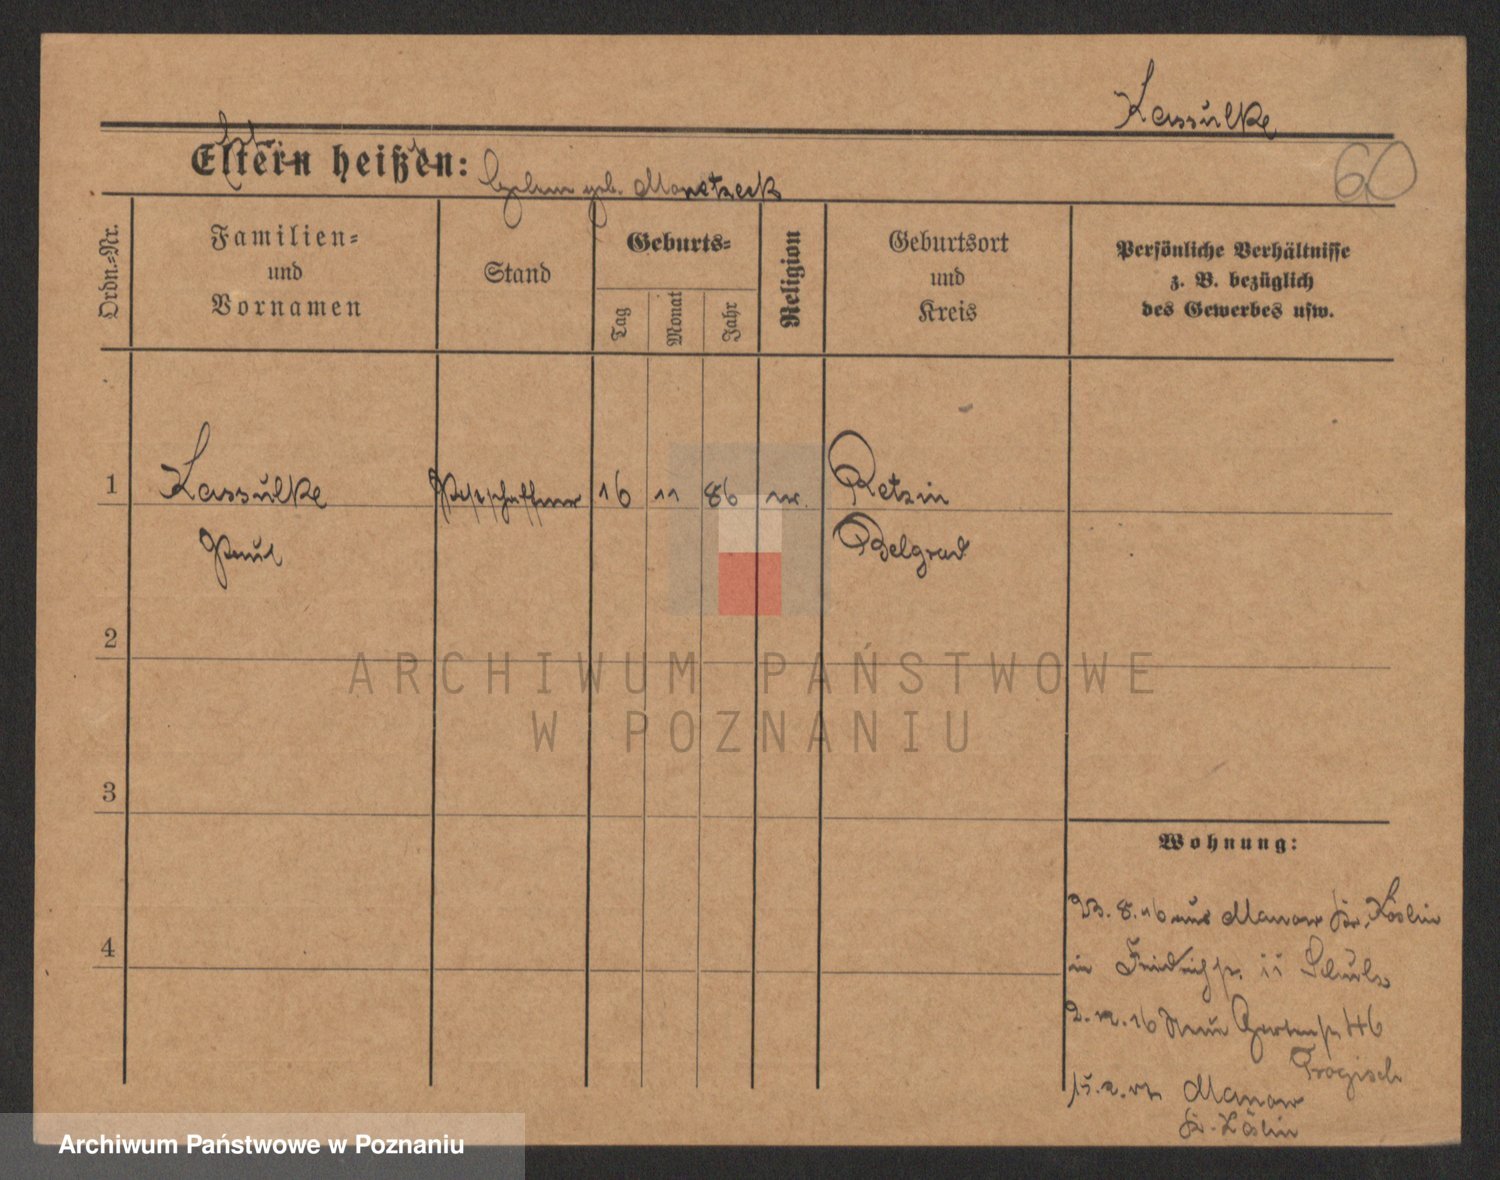 Kassulke
60
Eltern heißen:
geb. Manetzeck
Ordn.=Nr.
Familien=
und
Vornamen
Stand
Geburts=
Tag
Monat
Jahr
Religion
Geburtsort
und
Kreis
Persönliche Verhältnisse
z. B. bezüglich
des Gewerbes usw.
1
Kassulke
Postschaffner
16
11
86
ev.
Retzin
Paul
Belgrad
2
ARCHIWUM PAŃSTWOWE
W POZNANIU
3
Wohnung:
8.16 aus Manow Kr. Köslin
4
in Friedrichstr. 11 Schulz
2.12.16 Neue Gartenstr 46
Trogisch
Manow
Kr. Köslin
Archiwum Państwowe w Poznaniu